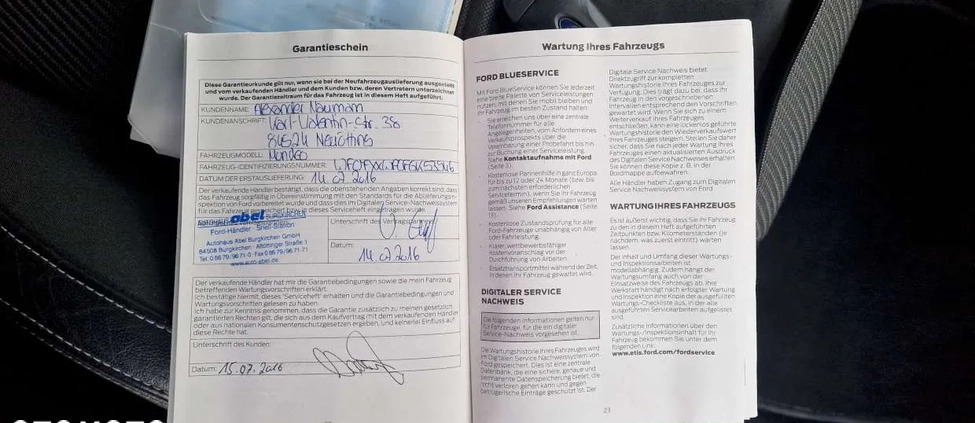 Garantieschein
Diese Garantieurkunde gilt nur, wenn sie bei der Neufahrzeugauslieferung ausgehändigt
und vom verkaufenden Händler und dem Kunden bzw. deren Vertretern unterzeichnet
wurde. Der Garantiezeitraum für das Fahrzeug ist in diesem Heft aufgeführt.
KUNDENNAME: Alexander Naumann
KUNDENANSCHRIFT: Karl-Valentin-Str. 38
84524 Neuötting
FAHRZEUGMODELL: Mondeo
FAHRZEUG-IDENTIFIZIERUNGSNUMMER
DATUM DER ERSTAUSLIEFERUNG: 14.07.2016
Der verkaufende Händler bestätigt, dass die obenstehenden Angaben korrekt sind, dass
das Fahrzeug sorgfältig in Übereinstimmung mit den Standards für die Ablieferungsin-
spektion von Ford vorbereitet wurde und dass dies im Digitalen Service-Nachweissystem
für das Fahrzeug
abel
Ford-Händler
Autohaus Abel Burgkirchen GmbH
84508 Burgkirchen · Altöttinger Straße 1
Tel. 0 86 79/96 71-0 · Fax 0 86 79/96 71-71
www.auto-abel.de
Unterschrift des Vertragspartners
Datum:
14.07.2016
Der verkaufende Händler hat mir die Garantiebedingungen sowie die mein Fahrzeug
betreffenden Wartungsvorschriften erklärt.
Ich bestätige hiermit, dieses 'Serviceheft' erhalten und die Garantiebedingungen und
Wartungsvorschriften gelesen zu haben.
Ich habe zur Kenntnis genommen, dass die Garantie zusätzlich zu meinen gesetzlich
garantierten Rechten gilt, die sich aus dem Kaufvertrag mit dem verkaufenden Händler
oder aus nationalen Konsumentenschutzgesetzen ergeben, und keinerlei Einfluss auf
diese Rechte hat.
Unterschrift des Kunden:
Datum: 15.07.2016
Wartung Ihres Fahrzeugs
FORD BLUESERVICE
Mit Ford BlueService können Sie jederzeit
eine breite Palette von Serviceleistungen
nutzen, mit denen Sie mobil bleiben und
Ihr Fahrzeug im besten Zustand halten.
Sie erreichen uns über eine zentrale
Telefonnummer für alle
Angelegenheiten, vom Anfordern eines
Verkaufsprospekts über die
Vereinbarung einer Probefahrt bis hin
zur Buchung einer Serviceleistung.
Siehe Kontaktaufnahme mit Ford
(Seite 3).
Kostenlose Pannenhilfe in ganz Europa
für bis zu 12 oder 24 Monate (bzw. bis
zum nächsten erforderlichen
Servicetermin), wenn Sie Ihr Fahrzeug
gemäß unseren Empfehlungen warten
lassen. Siehe Ford Assistance (Seite
Kostenlose Zustandsprüfung für alle
Ford-Fahrzeuge unabhängig von Alter
oder Fahrleistung.
Klarer, wettbewerbsfähiger
Kostenvoranschlag vor der
Durchführung von Arbeiten.
Ersatztransportmittel während der Zeit,
in denen Ihr Fahrzeug gewartet wird.
DIGITALER SERVICE
NACHWEIS
Die folgenden Informationen gelten nur
für Fahrzeuge, für die ein digitaler
Service-Nachweis vorgesehen ist.
Die Wartungshistorie Ihres Fahrzeugs wird
im Digitalen Service-Nachweissystem von
Ford gespeichert. Dies ist eine zentrale
Datenbank, die eine sichere, genaue und
permanente Datenspeicherung bietet, die
nicht verloren gehen kann und gegen
betrügerische Einträge geschützt ist. Der
Digitale Service Nachweis bietet
Direktzugriff zur kompletten
Wartungshistorie Ihres Fahrzeugs zur
Verfügung. Dies trägt dazu bei, dass Ihr
Fahrzeug in den vorgeschriebenen
Intervallen entsprechend den Vorschriften
gewartet wird. Wenn Sie sich zu einem
Weiterverkauf Ihres Fahrzeugs
entschließen, kann eine lückenlos geführte
Wartungshistorie den Wiederverkaufswert
Ihres Fahrzeugs steigern. Stellen Sie daher
sicher, dass Sie nach jeder Wartung Ihres
Fahrzeuges einen aktualisierten Ausdruck
des Digitalen Service Nachweises erhalten.
Sie können diese Kopie z. B. in der
Bordmappe aufbewahren.
Alle Händler haben Zugang zum Digitalen
Service Nachweissystem von Ford
WARTUNG IHRES FAHRZEUGS
Es ist äußerst wichtig, dass Sie Ihr Fahrzeug
zu den in diesem Heft aufgeführten
Zeitpunkten bzw. Kilometerständen (je
nachdem, was zuerst eintritt) warten
lassen.
Der Inhalt und Umfang dieser Wartungs-
und Inspektionsarbeiten ist
modellabhängig. Zudem hängt der
Wartungsumfang auch von der
Einsatzweise des Fahrzeugs ab. Ihre
Werkstatt händigt nach erfolgter Wartung
und Inspektion eine Kopie der ausgefüllten
Wartungs-Checkliste aus, in der alle
ausgeführten Servicearbeiten aufgelistet
sind.
Zusätzliche Informationen über den
Wartungs-/Inspektionsinhalt für Ihr
Fahrzeug bekommen Sie unter dem
folgenden Link:
www.etis.ford.com/fordservice
23